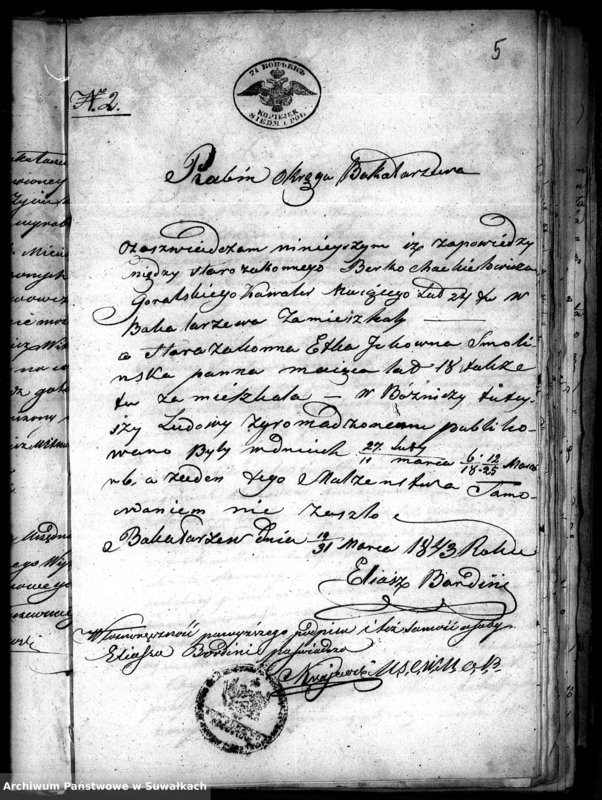 5
No 2.
7½ КОПѢЕКЪ
KOPIEJEK
SIEDM I PÓŁ
Rabin Okręga Bakałarzewa
Ozaszwiedczam ninieyszym iż zapowiedzy
między starozakonnego Berko
Goralskiego Kawaler Maiącego Lad 24 tu w
Bakałarzewa Zamieszkały
a Starazakonna Etka Jckowna Smoli-
nska panna maiąca lad 18 takze
tu zamieszkała — w Bóżniczy tutey-
szy Ludowy zgromadzonemu publiko-
wano Były w dniach 27 luty 11 marca 6·12 18·25 Marca
r b. a żeden tego Malzenstwa Tamo-
waniem nie zaszło
Bakałarzew dnia 19/31 Marca 1843 Roku
Eliasz Bardini
Własnoręczność powyższego podpisu i też samość osoby
Eliasza Bordini poświadcza
Archiwum Państwowe w Suwałkach